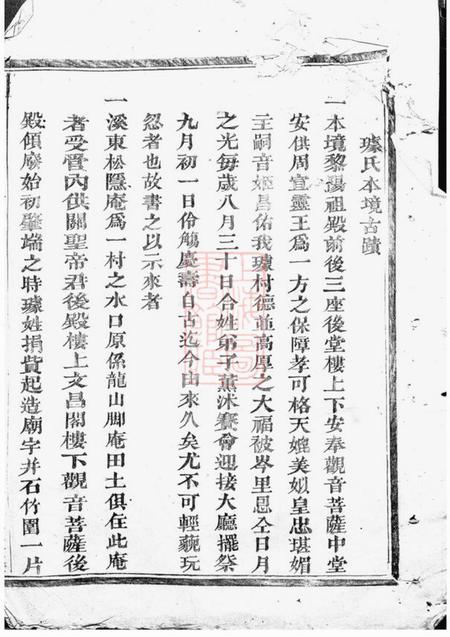 璩氏本境古蹟
一本境黎陽祖殿前後三座後堂樓上下安奉觀音菩薩中堂
安供周宣靈王爲一方之保障孝可格天媲美姒皇忠堪媚
王嗣音姬昌佑我璩村德並高厚之大福被岑里恩仝日月
之光每歲八月三十日合姓弟子薰沐賽會迎接大廳擺祭
九月初一日伶觴慶壽自古迄今由來久矣尤不可輕藐玩
忽者也故書之以示來者
一溪東松隱庵爲一村之水口原係龍山脚庵田土俱在此庵
者受管內供關聖帝君後殿樓上文昌閣樓下觀音菩薩後
殿傾廢始初肇端之時璩姓捐貲起造廟宇并石竹園一片